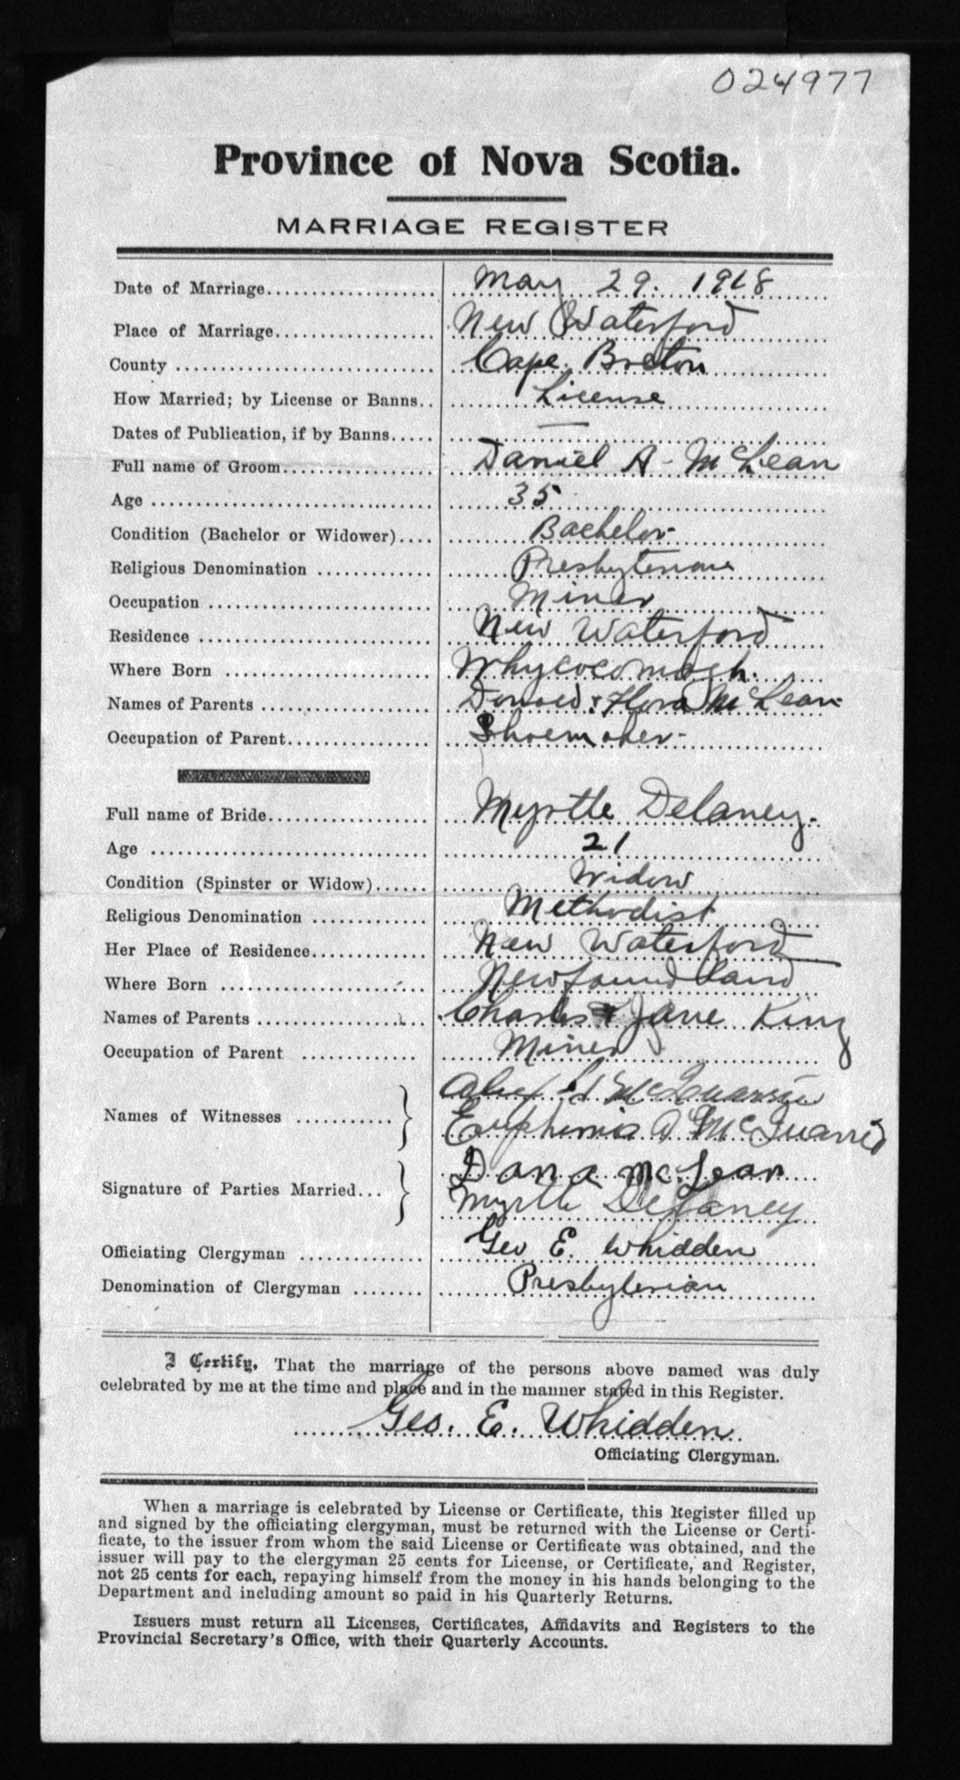 024977
Province of Nova Scotia.
MARRIAGE REGISTER
Date of Marriage.................... May 29. 1918
Place of Marriage................... New Waterford
County .............................. Cape Breton
How Married; by License or Banns.. License
Dates of Publication, if by Banns..... —
Full name of Groom.................. Daniel A - McLean
Age ................................. 35
Condition (Bachelor or Widower).... Bachelor
Religious Denomination .............. Presbyterian
Occupation .......................... Miner
Residence ........................... New Waterford
Where Born ......................... Whycocomagh.
Names of Parents .................... Donald & Flora McLean
Occupation of Parent................. Shoemaker-
Full name of Bride................... Myrtle Delaney.
Age ................................. 21
Condition (Spinster or Widow)...... Widow
Religious Denomination ............. Methodist
Her Place of Residence............. New Waterford
Where Born ........................ Newfoundland
Names of Parents .................... Charles & Jane King
Occupation of Parent ............. Miner
Names of Witnesses ........... }
Euphemia A McQuarrie
Signature of Parties Married... } Dan A McLean
Myrtle Delaney
Officiating Clergyman .............. Geo E. Whidden
Denomination of Clergyman ........ Presbyterian
I Certify, That the marriage of the persons above named was duly
celebrated by me at the time and place and in the manner stated in this Register.
Geo. E. Whidden
Officiating Clergyman.
When a marriage is celebrated by License or Certificate, this Register filled up
and signed by the officiating clergyman, must be returned with the License or Certi-
ficate, to the issuer from whom the said License or Certificate was obtained, and the
issuer will pay to the clergyman 25 cents for License, or Certificate, and Register,
not 25 cents for each, repaying himself from the money in his hands belonging to the
Department and including amount so paid in his Quarterly Returns.
Issuers must return all Licenses, Certificates, Affidavits and Registers to the
Provincial Secretary's Office, with their Quarterly Accounts.